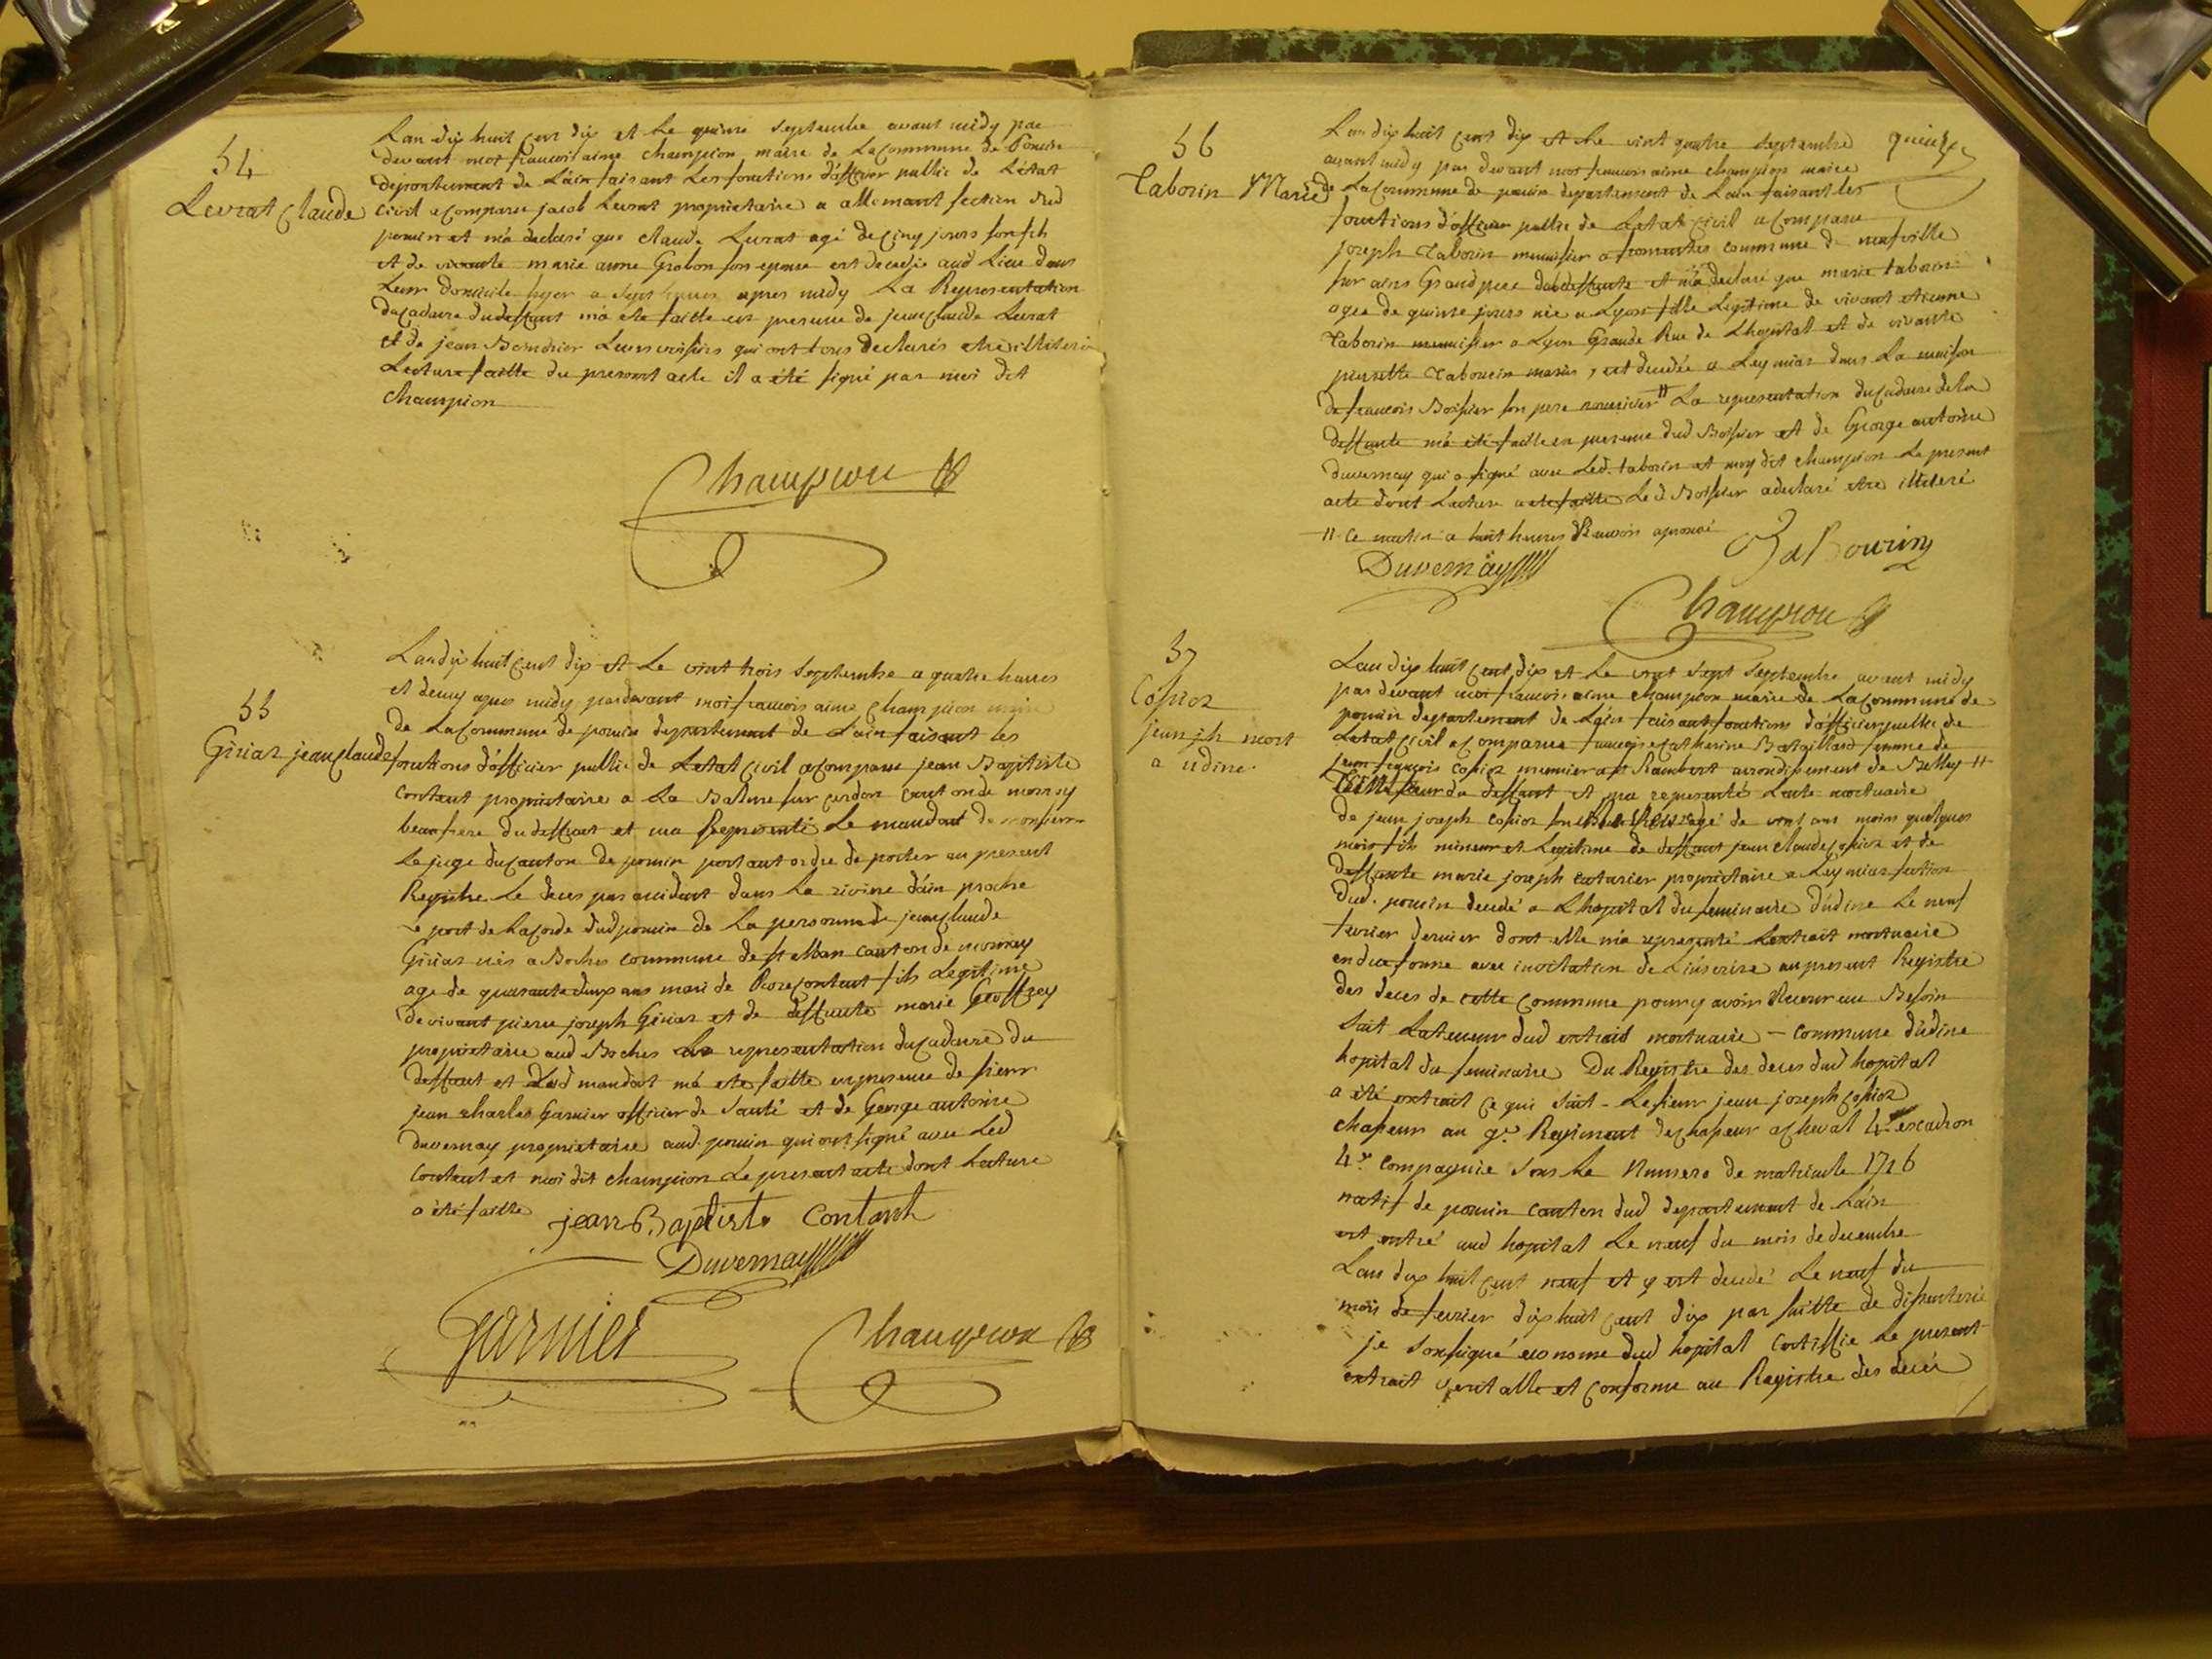 54
Levrat Claude
Lan dix huit cent dix et le quinze septembre avant midy par
devant moi francois aime champion maire de la Commune de Poncin
departement de Lain faisant les fonctions dofficier public de Létat
civil a comparu jacob Levrat proprietaire a allement section dud
poncin et ma declaré que claude Levrat agé de cinq jours son fils
et de vivante marie anne Grobon son epouse est decedé aud Lieu dans
Leur domicile hyer a sept heures apres midy La Representation
du cadavre du deffunt ma ete faitte en presence de jean claude Levrat
et de jean Bondrier Leurs voisins qui ont tous declarés etre illiterés
Lecture faitte du present acte il a été signé par moi dit
champion
Champion
55
Giriaz jean claude
Lan dix huit cent dix et Le vint trois septembre a quatre heures
et demy apres midy par devant moi francois aime champion maire
de La Commune de poncin departement de Lain faisant les
fonctions d'officier public de Letat civil a comparu jean Baptiste
Contant proprietaire a La Balme sur cerdon canton de nornay
beau frere du deffunt et ma Representé Le mandat de monsieur
Le juge du canton de poncin portant ordre de porter au present
Registre Le deces par accident dans La riviere d'ain proche
Le port de La corde dud poncin de La personne de jean claude
Giriaz nés a Boches commune de st alban canton de nornay
age de quarante deux ans mari de Rose Contant fils Legitime
de vivant pierre joseph Giriaz et de deffunte marie Geoffrey
proprietaire aud Boches La representation du cadavre du
deffunt et dud mandat ma ete faitte en presence de sieur
jean charles Garnier officier de santé et de George antoine
duvernay proprietaire aud. poncin qui ont signé avec Led
Contant et moi dit champion Le present acte dont Lecture
a été faitte
jean Baptiste Contant
Duvernay
Garnier
Champion
56
Taborin Marie
quinze
Lan dix huit cent dix et Le vint quatre septembre
avant midy par devant moi francois aime champion maire
de La Commune de poncin departement de Lain faisant les
fonctions d'officier public de Letat civil a comparu
joseph Taborin menuisier a fromentes commune de neufville
sur ains Grand pere de la deffunte et ma declaré que marie taborin
agée de quinze jours née a Lyon fille Legitime de vivant etienne
Taborin menuisier a Lyon Grande Rue de L'hopital et de vivante
pierrette Tabourin mariés, est decedée a Leymiaz dans La maison
de francois Boissier son pere nouricier # La representation du cadavre de la
deffunte ma été faitte en presence dud Boissier et de George antoine
duvernay qui a signé avec Led. taborin et moy dit champion Le present
acte dont Lecture a ete faitte Led Boissier a declaré etre illiteré
# Ce matin a huit heures Renvois aprouvé
Tabourin
Duvernay
Champion
57
Copioz
jean jh mort
a udine.
Lan dix huit cent dix et Le vint sept septembre avant midy
par devant moi francois aime champion maire de La Commune de
poncin departement de Lain faisant fonctions d'officier public de
Letat civil a comparue francoise catherine Bataillard femme de
jean francois Copioz meunier a st Rambert arrondissement de Belley #
du deffunt et ma representé L'acte mortuaire
de jean joseph copioz son agé de vint ans moins quelques
mois fils mineur et Legitime de deffunt jean claude Copioz et de
deffunte marie joseph proprietaire a Leymiaz section
dud. poncin decedé a L'hopital du seminaire d'udine Le neuf
fevrier dernier dont elle ma representé Lextrait mortuaire
en due forme avec invitation de L'inscrire au present Registre
des deces de cette commune pour y avoir Recour au Besoin
Suit La teneur dud extrait mortuaire - commune dudine
hopital du seminaire Du Registre des deces dud hopital
a été extrait ce qui suit - Le sieur jean joseph copioz
chasseur au 9e. Regiment de chasseur a cheval 4e escadron
4e compagnie sous Le Numero de matricule 1716
natif de poncin canton dud departement de Lain
est entré aud hopital Le neuf du mois de decembre
Lan dix huit cent neuf et y est decedé Le neuf du
mois de fevrier dix huit cent dix par suitte de dissenterie
je soussigné econome dud hopital Certiffie Le present
extrait veritable et conforme au Registre des decés